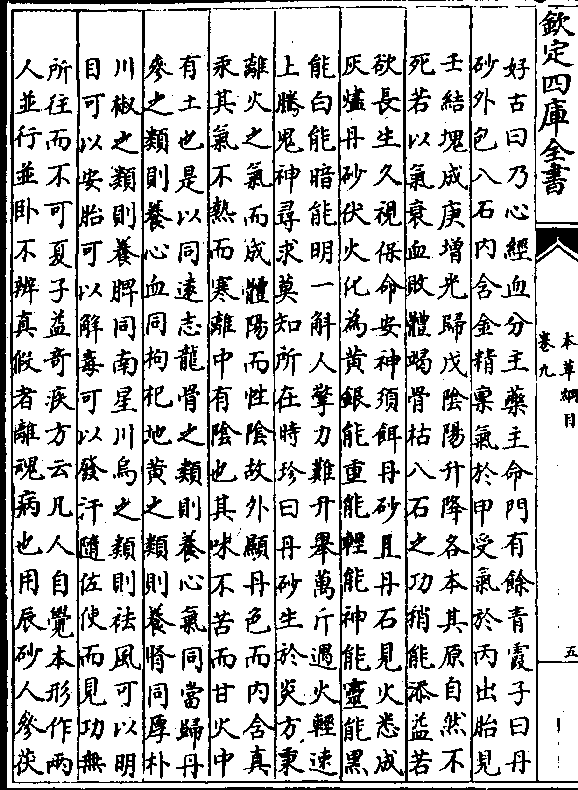 欽定四庫全書
本草綱目
卷九
五
好古曰乃心經血分主藥主命門有餘青霞子曰丹
砂外包八石内含金精稟氣於甲受氣於丙出胎見
壬結塊成庚增光歸戊陰陽升降各本其原自然不
死若以氣衰血敗體竭骨枯八石之功稍能添益若
欲長生久視保命安神須餌丹砂且丹石見火悉成
灰燼丹砂伏火化為黃銀能重能輕能神能靈能黑
能白能暗能明一解人擎力難升舉萬斤遇火輕速
上騰鬼神尋求莫知所在時珍曰丹砂生於炎方秉
離火之氣而成體陽而性陰故外顯丹色而内含真
汞其氣不熱而寒離中有陰也其味不苦而甘火中
有土也是以同遠志龍骨之類則養心氣同當歸丹
參之類則養心血同枸杞地黃之類則養腎同厚朴
川椒之類則養脾同南星川烏之類則祛風可以明
目可以安胎可以解毒可以發汗隨佐使而見功無
所往而不可夏子益奇疾方云凡人自覺本形作兩
人並行並卧不辨真假者離魂病也用辰砂人參茯